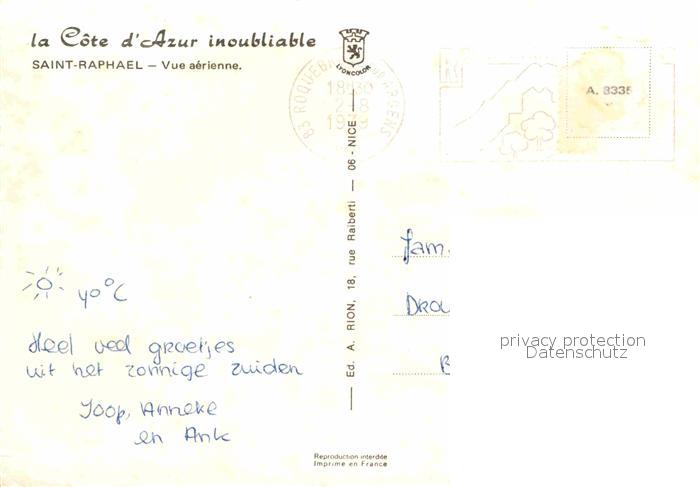 la Côte d'Azur inoubliable
SAINT-RAPHAEL — Vue aérienne.
LYONCOLOR
83 ROQUEBRUNE ARGENS
A. 8335
Ed. A. RION, 18, rue Raiberti — 06 - NICE
40°C
Heel veel groetjes
uit het zonnige zuiden
Joop, Anneke
en Ank
Fam.
privacy protection
Datenschutz
Reproduction interdite
Imprimé en France